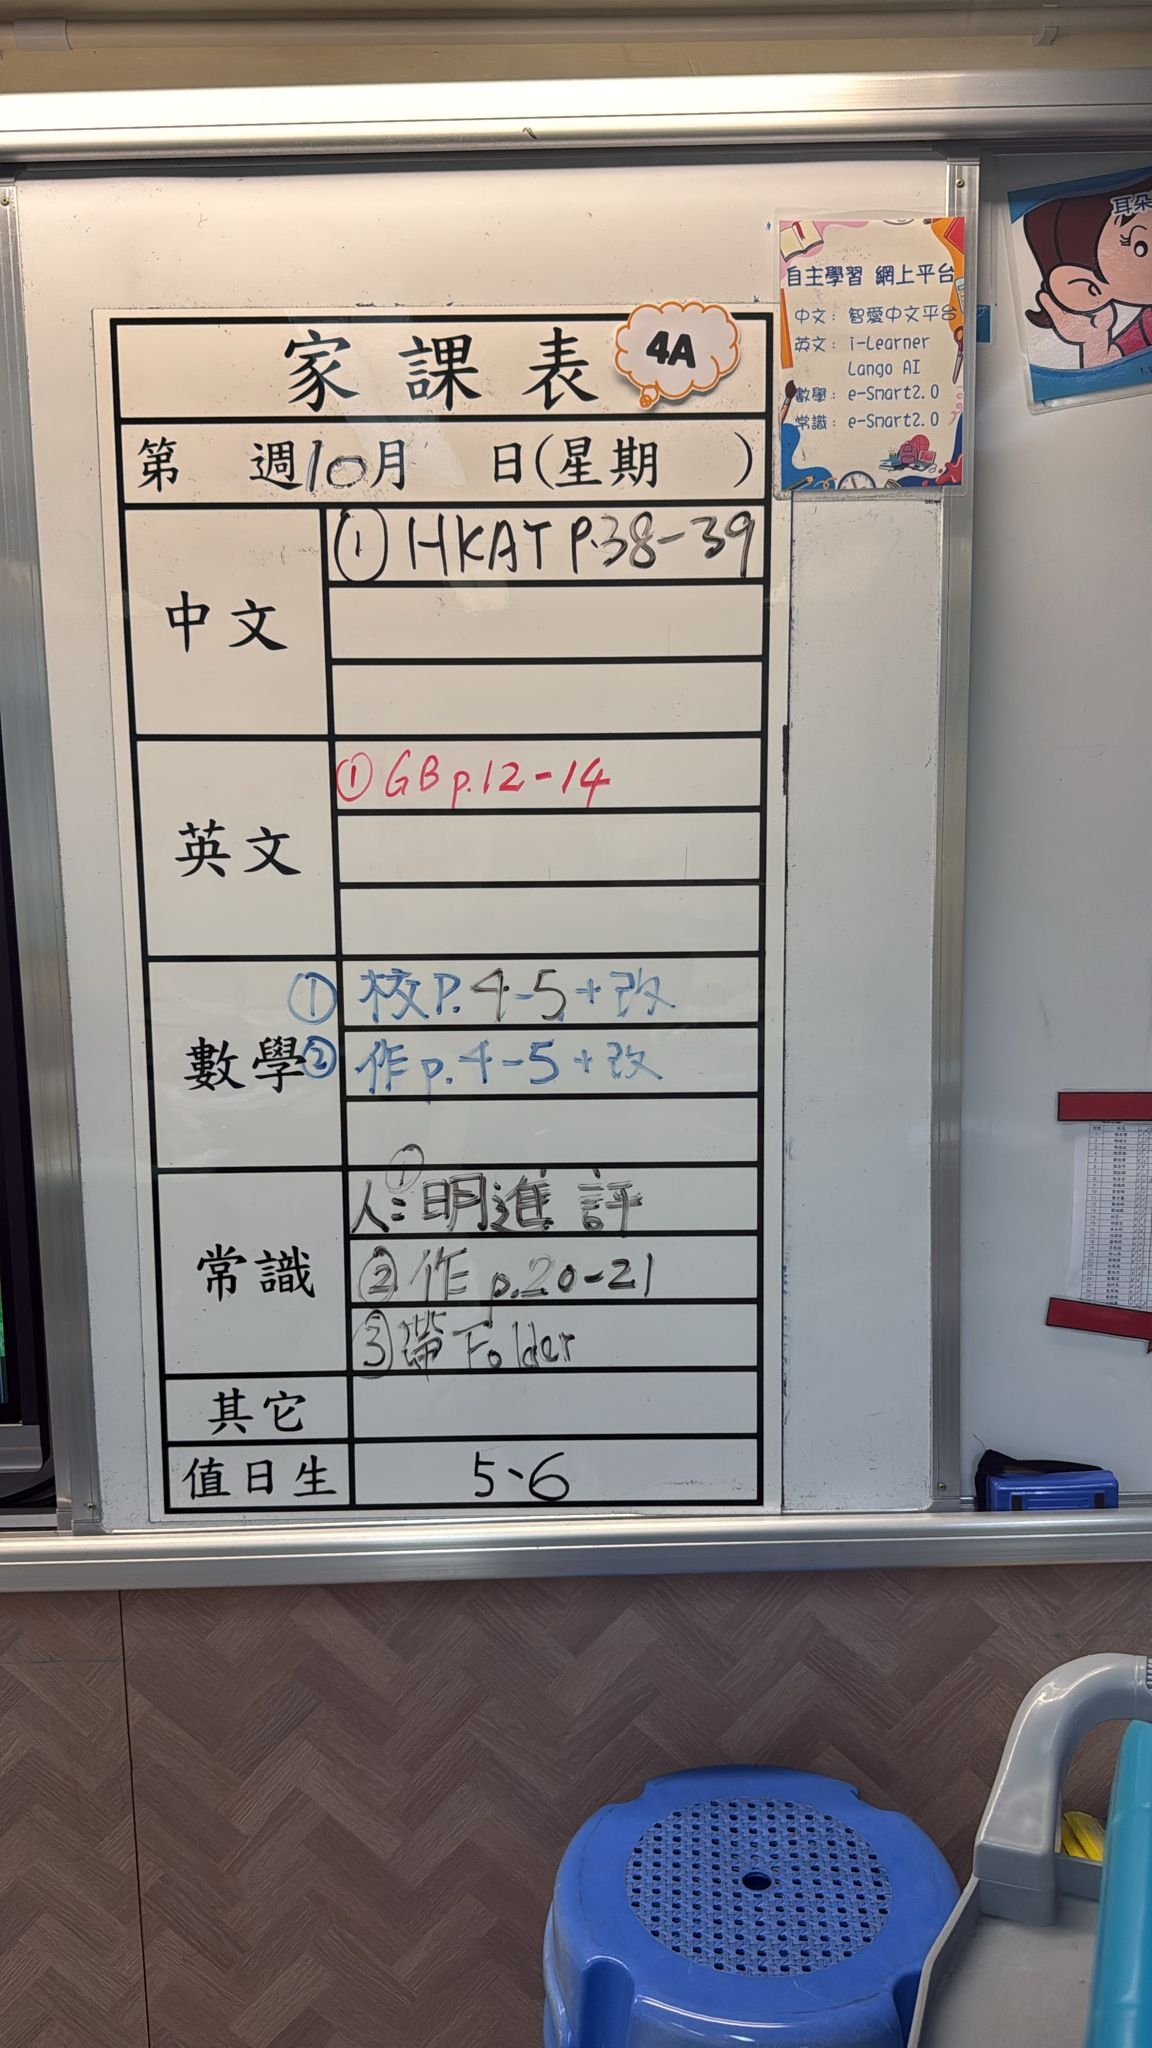 家課表
4A
第 週10月 日(星期 )
中文
① HKAT P.38-39
英文
① GB p.12-14
數學
① 校P.4-5+改
② 作p.4-5+改
常識
①
人:明進評
② 作 p.20-21
③ 帶Folder
其它
值日生
5、6
自主學習 網上平台
中文：智愛中文平台
英文：i-Learner
Lango AI
數學：e-Smart2.0
常識：e-Smart2.0
耳朵